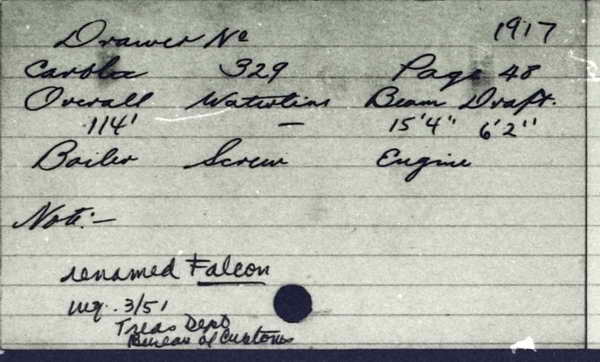 Drawer No 1917
329 Page 48
Overall Waterline Beam Draft.
114' — 15'4" 6'2"
Boiler Screw Engine
Note:—
renamed Falcon
3/51
Treas Dept
Bureau of Customs